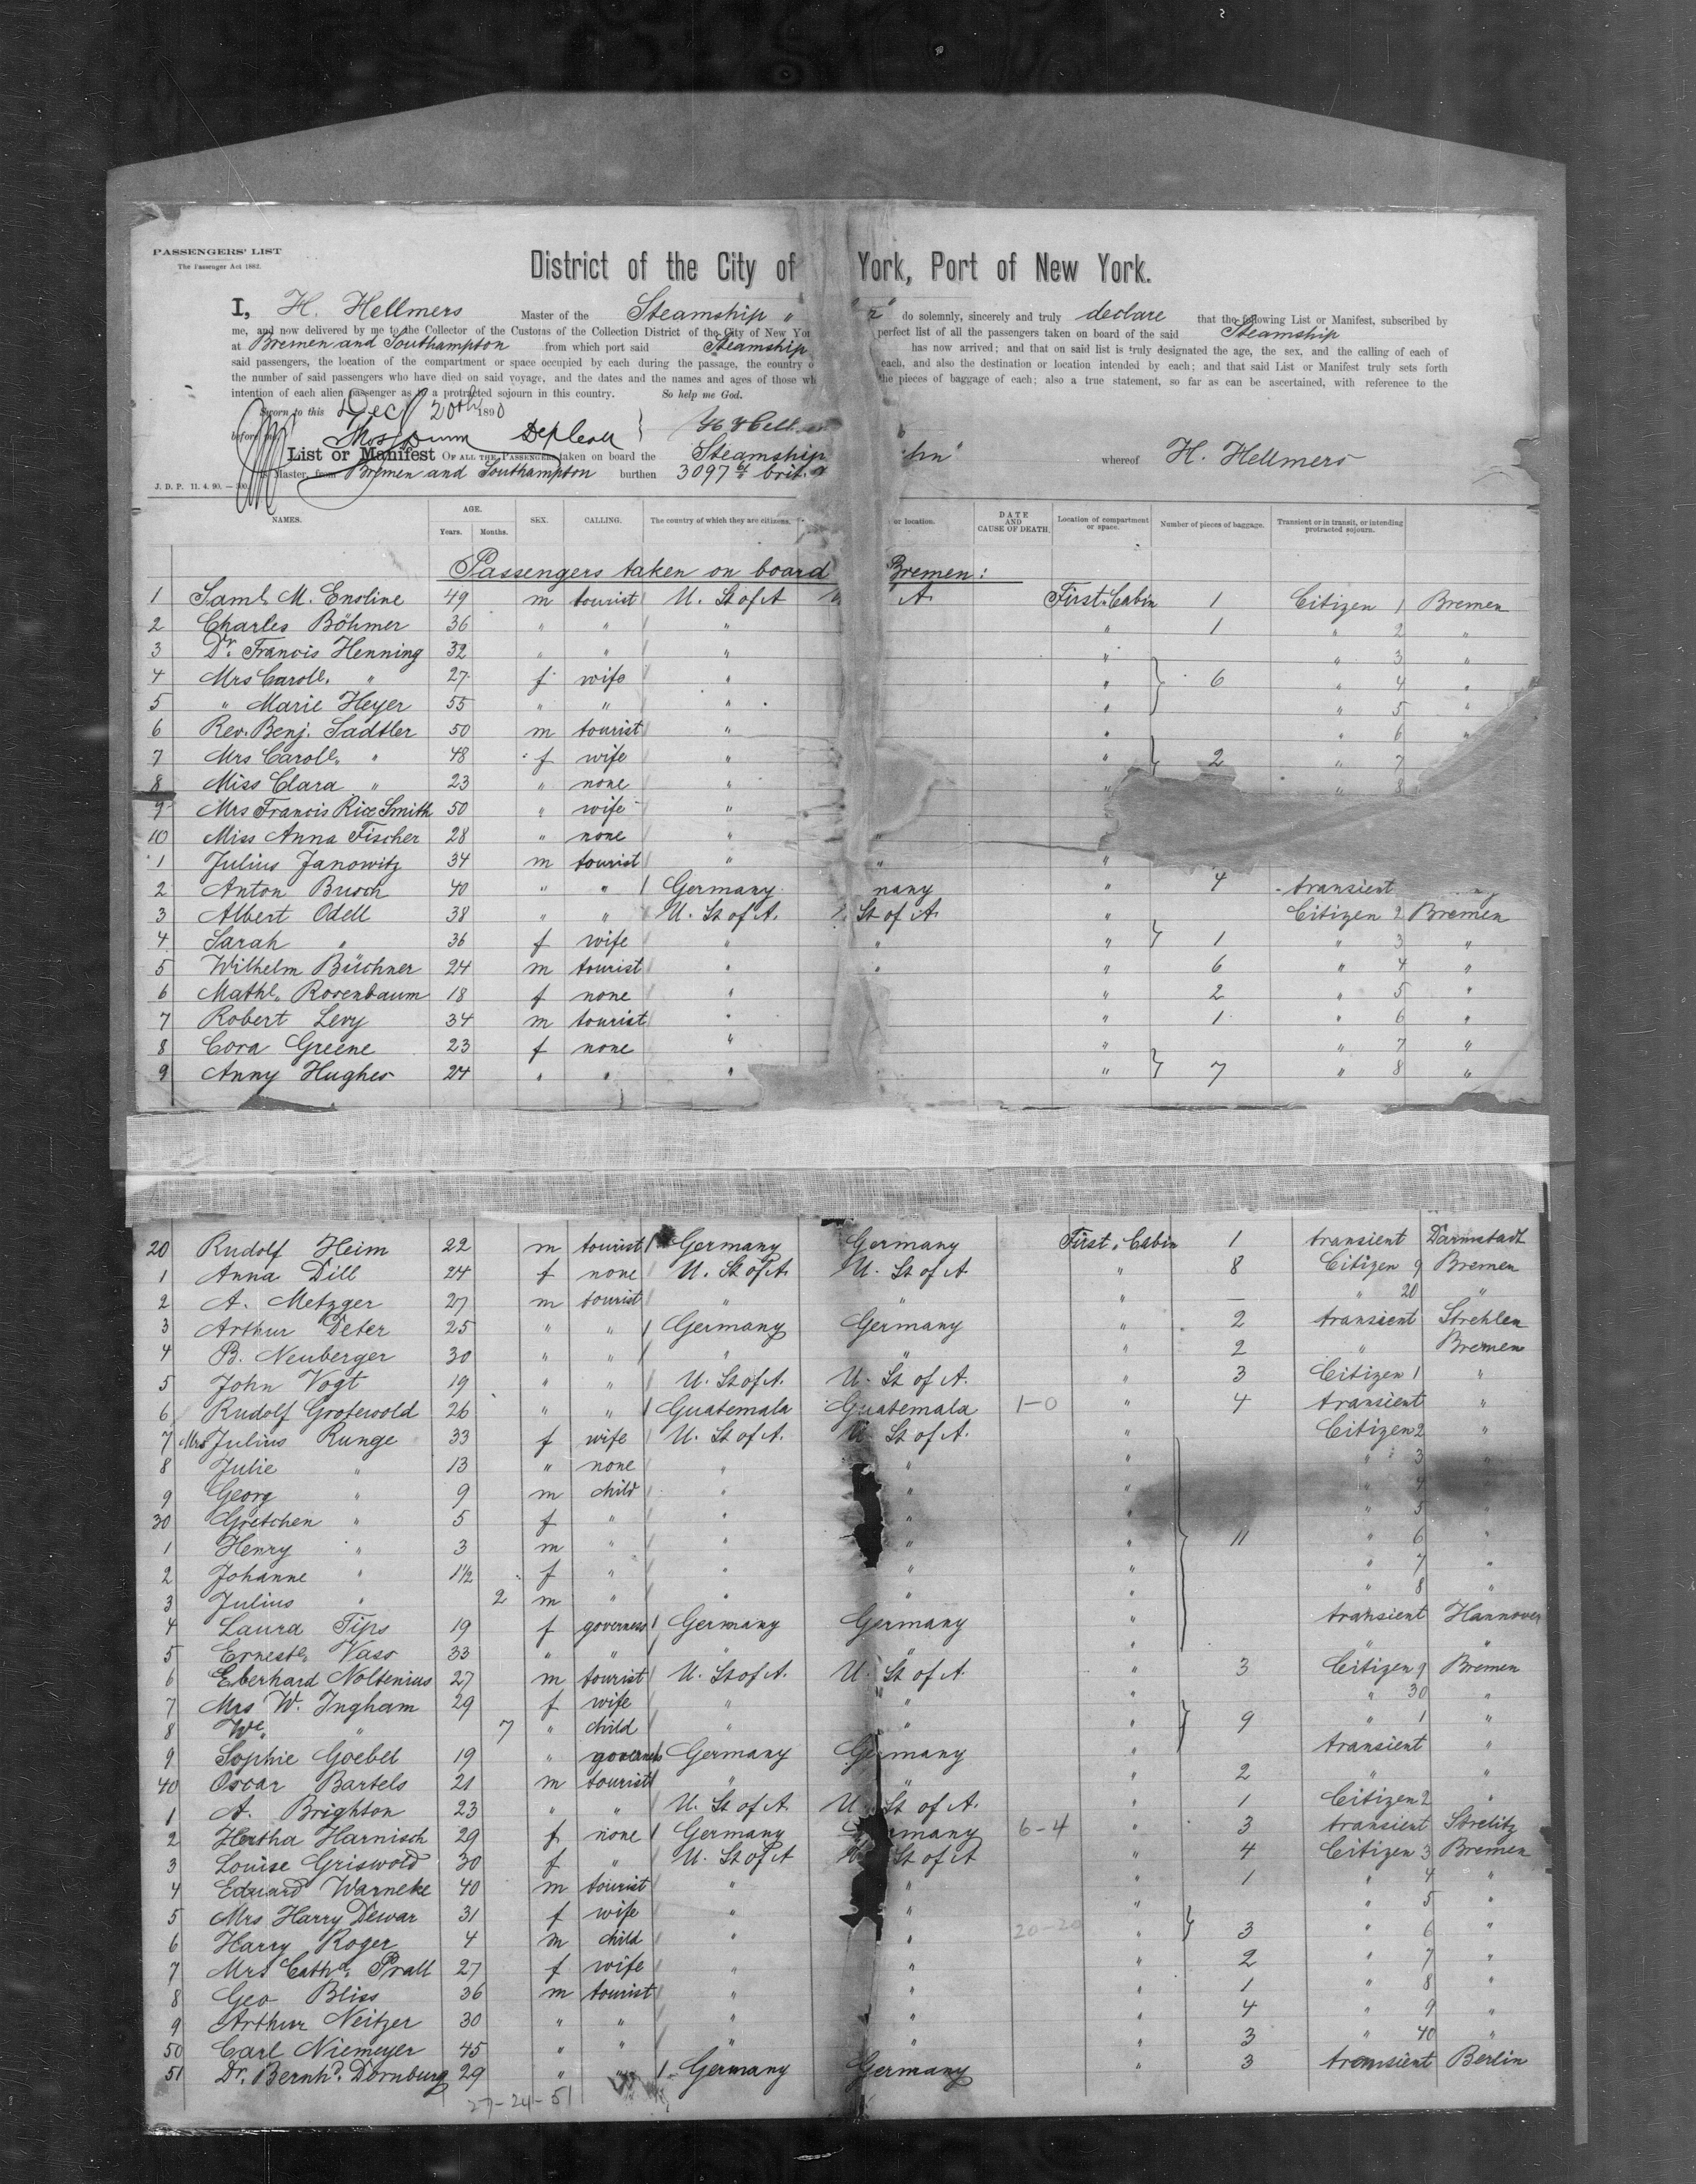 PASSENGERS' LIST
The Passenger Act 1882.
District of the City of York, Port of New York.
I, H. Hellmers Master of the Steamship " do solemnly, sincerely and truly declare that the following List or Manifest, subscribed by
me, and now delivered by me to the Collector of the Customs of the Collection District of the City of New Yor perfect list of all the passengers taken on board of the said Steamship
at Bremen and Southampton from which port said Steamship has now arrived; and that on said list is truly designated the age, the sex, and the calling of each of
said passengers, the location of the compartment or space occupied by each during the passage, the country o each, and also the destination or location intended by each; and that said List or Manifest truly sets forth
the number of said passengers who have died on said voyage, and the dates and the names and ages of those wh the pieces of baggage of each; also a true statement, so far as can be ascertained, with reference to the
intention of each alien passenger as to a protracted sojourn in this country. So help me God.
Sworn to this Dec 20th 1890
before me
List or Manifest OF ALL THE PASSENGERS taken on board the Steamship whereof H. Hellmers
is Master, from Bremen and Southampton burthen 3097
J. D. P. 11. 4. 90. — 300.
NAMES. AGE. Years. Months. SEX. CALLING. The country of which they are citizens. or location. DATE AND CAUSE OF DEATH. Location of compartment or space. Number of pieces of baggage. Transient or in transit, or intending protracted sojourn.
Passengers taken on board Bremen:
1 Saml. M. Ensline 49 m tourist U. St of A A. First Cabin 1 Citizen 1 Bremen
2 Charles Böhmer 36 " " " " 1 " 2 "
3 Dr. Francis Henning 32 " " " " " 3 "
4 Mrs Carole. " 27 f wife " " 6 " 4 "
5 " Marie Heyer 55 " " " " " 5 "
6 Rev. Benj. Sadtler 50 m tourist " " " 6 "
7 Mrs Carole. " 48 f wife " " 2 " 7
8 Miss Clara " 23 " none " " 8
9 Mrs Francis Rice Smith 50 " wife "
10 Miss Anna Fischer 28 " none " "
1 Julius Janowitz 34 m tourist " " "
2 Anton Busch 40 " " Germany many " 4 transient
3 Albert Odell 38 " " U. St of A. St of A. " Citizen 2 Bremen
4 Sarah " 36 f wife " " " 1 " 3 "
5 Wilhelm Büchner 24 m tourist " " " 6 " 4 "
6 Mathe. Rosenbaum 18 f none " " 2 " 5 "
7 Robert Levy 34 m tourist " " 1 " 6 "
8 Cora Greene 23 f none " " " 7 "
9 Anny Hughes 24 " " " " 7 " 8 "
20 Rudolf Heim 22 m tourist Germany Germany First Cabin 1 transient Darmstadt
1 Anna Dill 24 f none U. St of A. U. St of A " 8 Citizen 9 Bremen
2 A. Metzger 27 m tourist " " " — " 20 "
3 Arthur Deter 25 " " Germany Germany " 2 transient Strehlen
4 B. Neuberger 30 " " " " " 2 " Bremen
5 John Vogt 19 " " U. St of A. U. St of A. " 3 Citizen 1 "
6 Rudolf Grotewold 26 " " Guatemala Guatemala 1-0 " 4 transient "
7 Mrs Julius Runge 33 f wife U. St of A. U. St of A. " Citizen 2 "
8 Julie " 13 " none " " " " 3 "
9 Georg " 9 m child " " " " 4 "
30 Gretchen " 5 f " " " " " 5 "
1 Henry " 3 m " " " " 11 " 6 "
2 Johanne " 1½ f " " " " " 7 "
3 Julius " 2 m " " " " " 8 "
4 Laura Tips 19 f governess Germany Germany " transient Hannover
5 Erneste. Vass 33 " " " " " " "
6 Eberhard Noltenius 27 m tourist U. St of A. U. St of A. " 3 Citizen 9 Bremen
7 Mrs W. Ingham 29 f wife " " " " 30 "
8 We. " 7 " child " " " 9 " 1 "
9 Sophie Goebel 19 " governess Germany Germany " transient "
40 Oscar Bartels 21 m tourist " " " 2 " "
1 A. Brighton 23 " " U. St of A. U. St of A. " 1 Citizen 2 "
2 Hertha Harnisch 29 f none Germany Germany 6-4 " 3 transient Strelitz
3 Louise Griswold 30 f " U. St of A St of A " 4 Citizen 3 Bremen
4 Eduard Warneke 40 m tourist " " " 1 " 4 "
5 Mrs Harry Dewar 31 f wife " " " " 5 "
6 Harry Roger 4 m child " " 20-20 " 3 " 6 "
7 Mrs Cathe. Prall 27 f wife " " " 2 " 7 "
8 Geo Bliss 36 m tourist " " " 1 " 8 "
9 Arthur Neitzer 30 " " " " " 4 " 9 "
50 Carl Niemeyer 45 " " " " " 3 " 40 "
51 Dr. Bernhd. Dornburg 29 " " Germany Germany " 3 transient Berlin
27-24-51